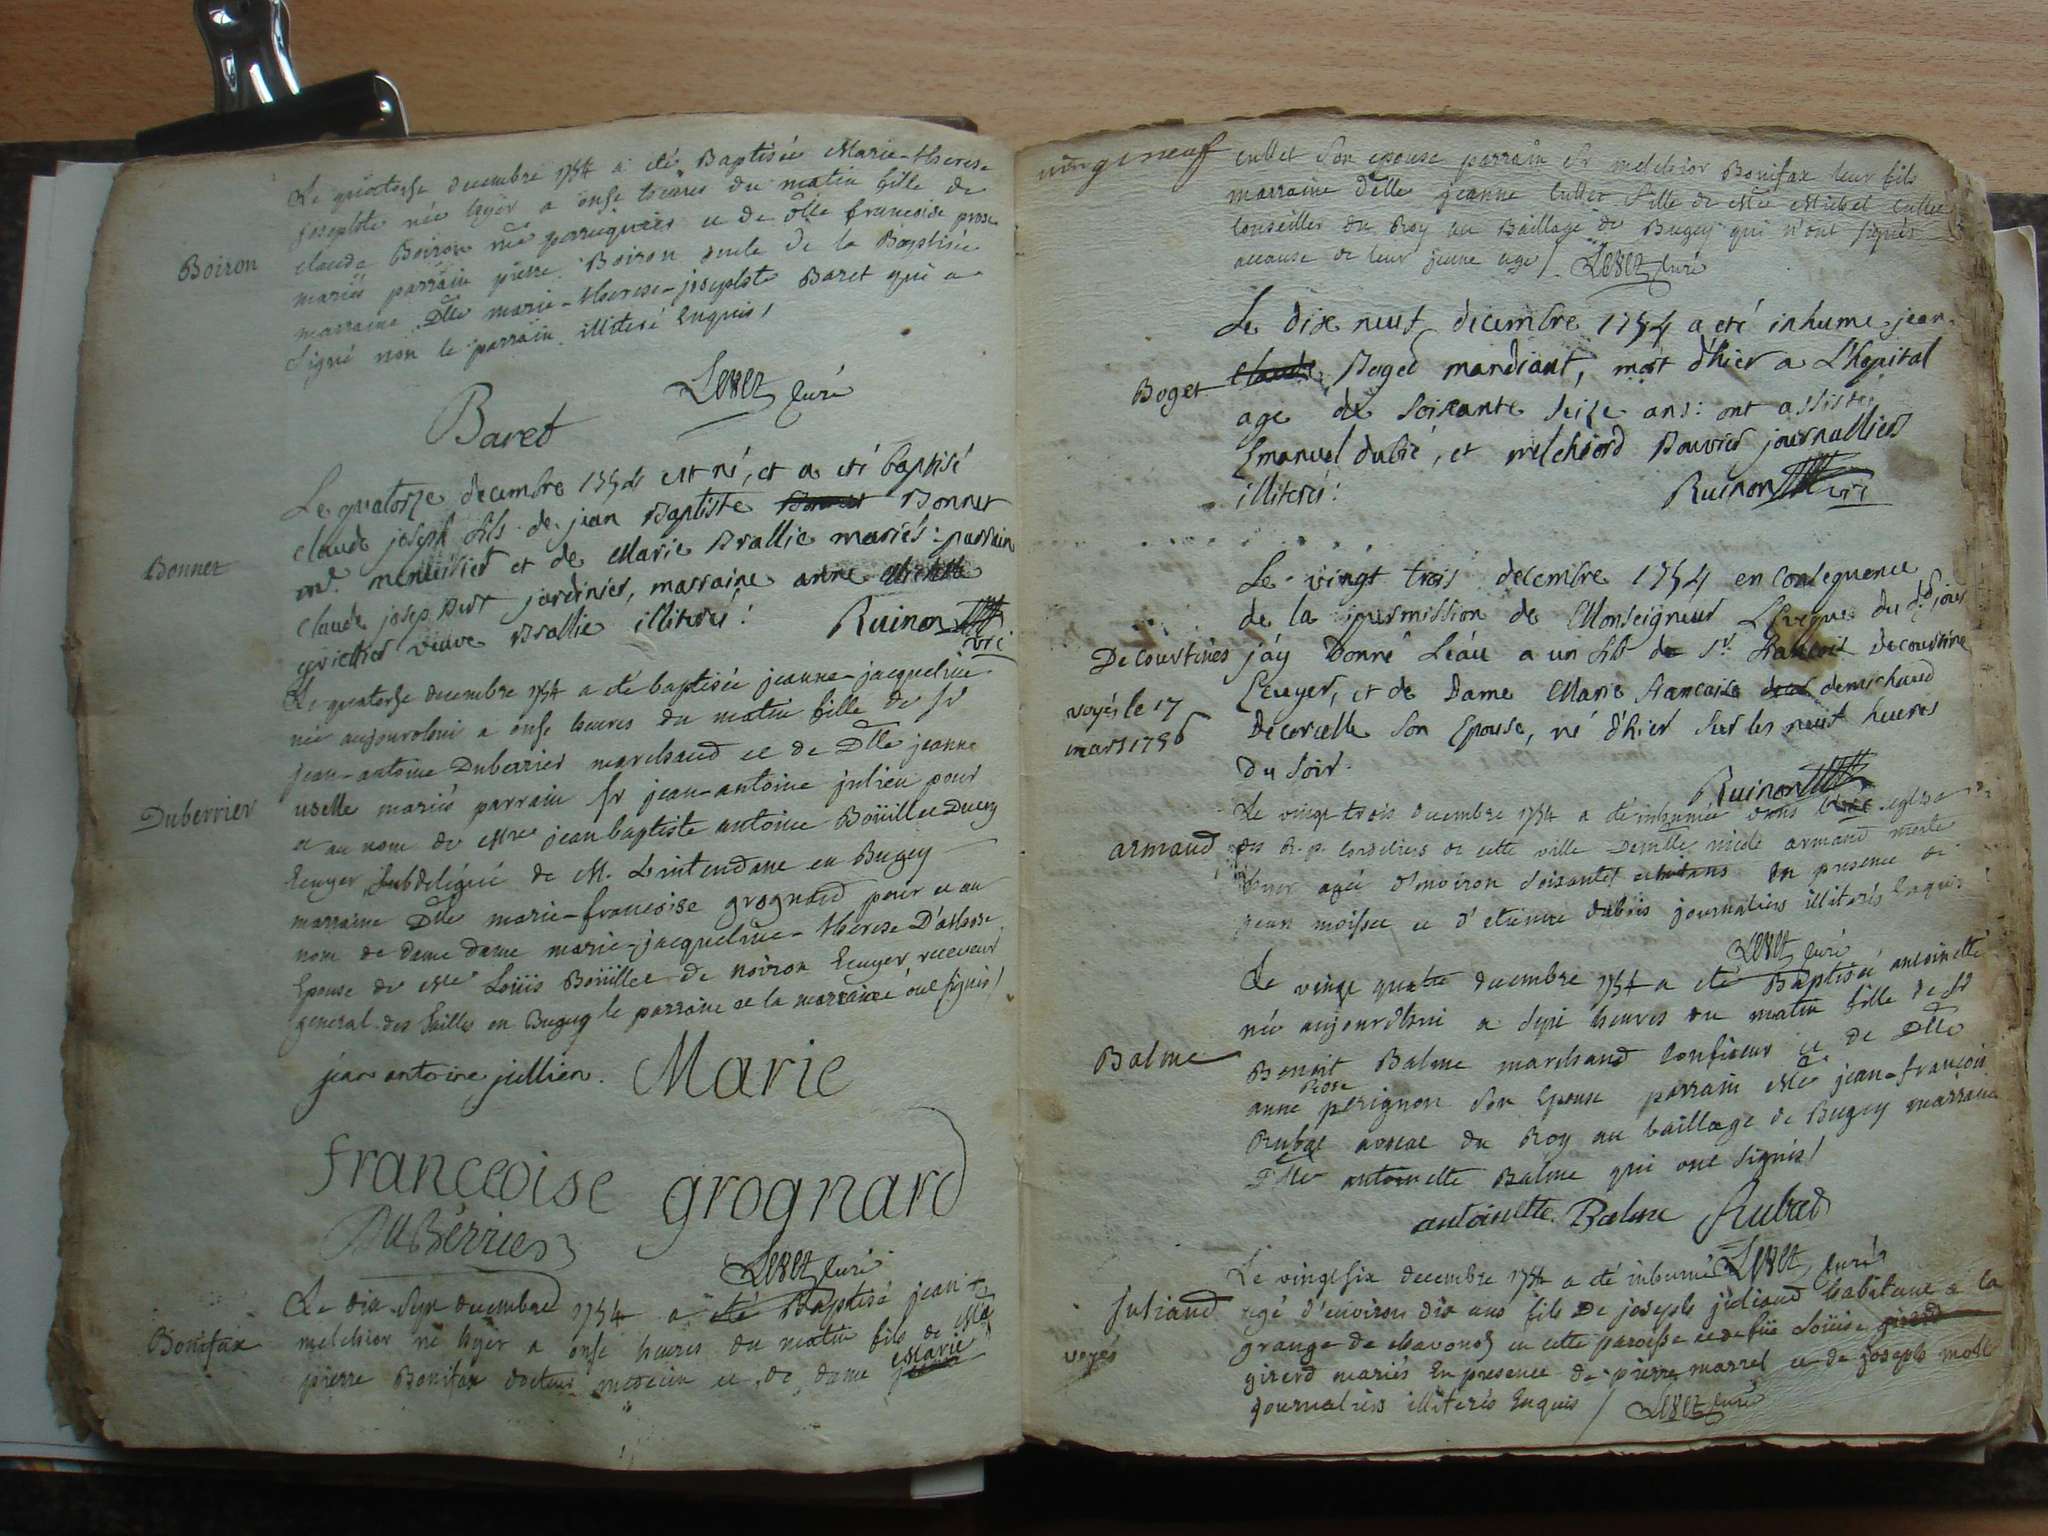 Boiron
Le quatorse decembre 1754 a été Baptisée Marie-therese
josephte née hyer a onse heures du matin fille de
claude Boiron me perruquier et de dlle francoise
mariés parrain pierre Boiron oncle de la Baptisée
marraine Dlle marie-therese-josephte Baret qui a
signé non le parrain illiteré Enquis /
Levet Curé
Baret
Bonnet
Le quatorze decembre 1754 est né, et a eté baptisé
claude joseph fils de jean Baptiste Bonnet
md. menuisier et de Marie Brallie mariés: parrain
claude josep jardinier, marraine anne
veuve Brallie illiterés:
Ruinon vic
Duberrier
Le quatorse decembre 1754 a été baptisée jeanne-jacqueline
née aujourdhui a onse heures du matin fille de sr
jean-antoine Duberrier marchand et de Dlle jeanne
uselle mariés parrain sr jean-antoine julien pour
et au nom de Mre jean baptiste antoine Boüillet
Ecuyer subdelegué de M. L'intendant en Bugey
marraine Dlle marie-francoise grognard pour et au
nom de dame dame marie-jacqueline-therese
Epouse de Mre Loüis Boüillet de noiron Ecuyer receveur
general des tailles en Bugey le parrain et la marraine ont signés /
jean antoine jullien. Marie
franceoise grognard
DuBérrier
Levet Curé
Bonifax
Le dix sept decembre 1754 a été Baptisé jean
melchior né hyer a onse heures du matin fils de Me
pierre Bonifax docteur medecin et de dame Marie
vingt neuf
cullet son epouse parrain sr melchior Bonifax leur fils
marraine delle jeanne cullet fille de Me Michel cullet
Conseiller du Roy au Baillage de Bugey qui n'ont signés
acause de leur jeune age / Levet Curé
Boget
Le dix neuf decembre 1754 a eté inhume jean
claude Boget mandiant, mort d'hier a L'hopital
age de soixante seize ans: ont assistes
Emanuel dubié, et melchiord Bouvier journalliers
illiterés:
Ruinon vic
Decourtines
voyés le 17
mars 1756
Le vingt trois decembre 1754 en consequence
de la permission de Monseigneur L'Eveque du d. jour
j'ay donné L'eau a un fils de Sr. francois decourtine
Ecuyer, et de Dame Marie francoise demichaud
Decorcelle son Epouse, né d'hier sur les neuf heures
du soir.
Ruinon
armand
Le vingt trois decembre 1754 a été inhumée dans l'eglise
des R. p. Cordeliers de cette ville Demlle nicole armand morte
hyer agée d'environ soixante ans En presence de
jean moissee et d'etienne dubois journaliers illiterés Enquis
Levet Curé
Balme
Le vingt quatre decembre 1754 a été Baptisée antoinette
née aujourdhui a sept heures du matin fille de sr
Benoit Balme marchand Confiseur et de Dlle
anne Rose perignon son Epouse parrain Me jean-francois
Rubat avocat du Roy au baillage de Bugey marraine
Dlle antoinette Balme qui ont signés /
antoinette Balme Rubat
Levet Curé
juliand
voyés
Le vingt six decembre 1754 a été inhumé
agé d'environ dix ans fils de joseph juliand habitant a la
grange de chavond en cette paroisse et de füe Loüise girerd
girerd mariés En presence de pierre marrel et de joseph
journaliers illiterés Enquis / Levet Curé